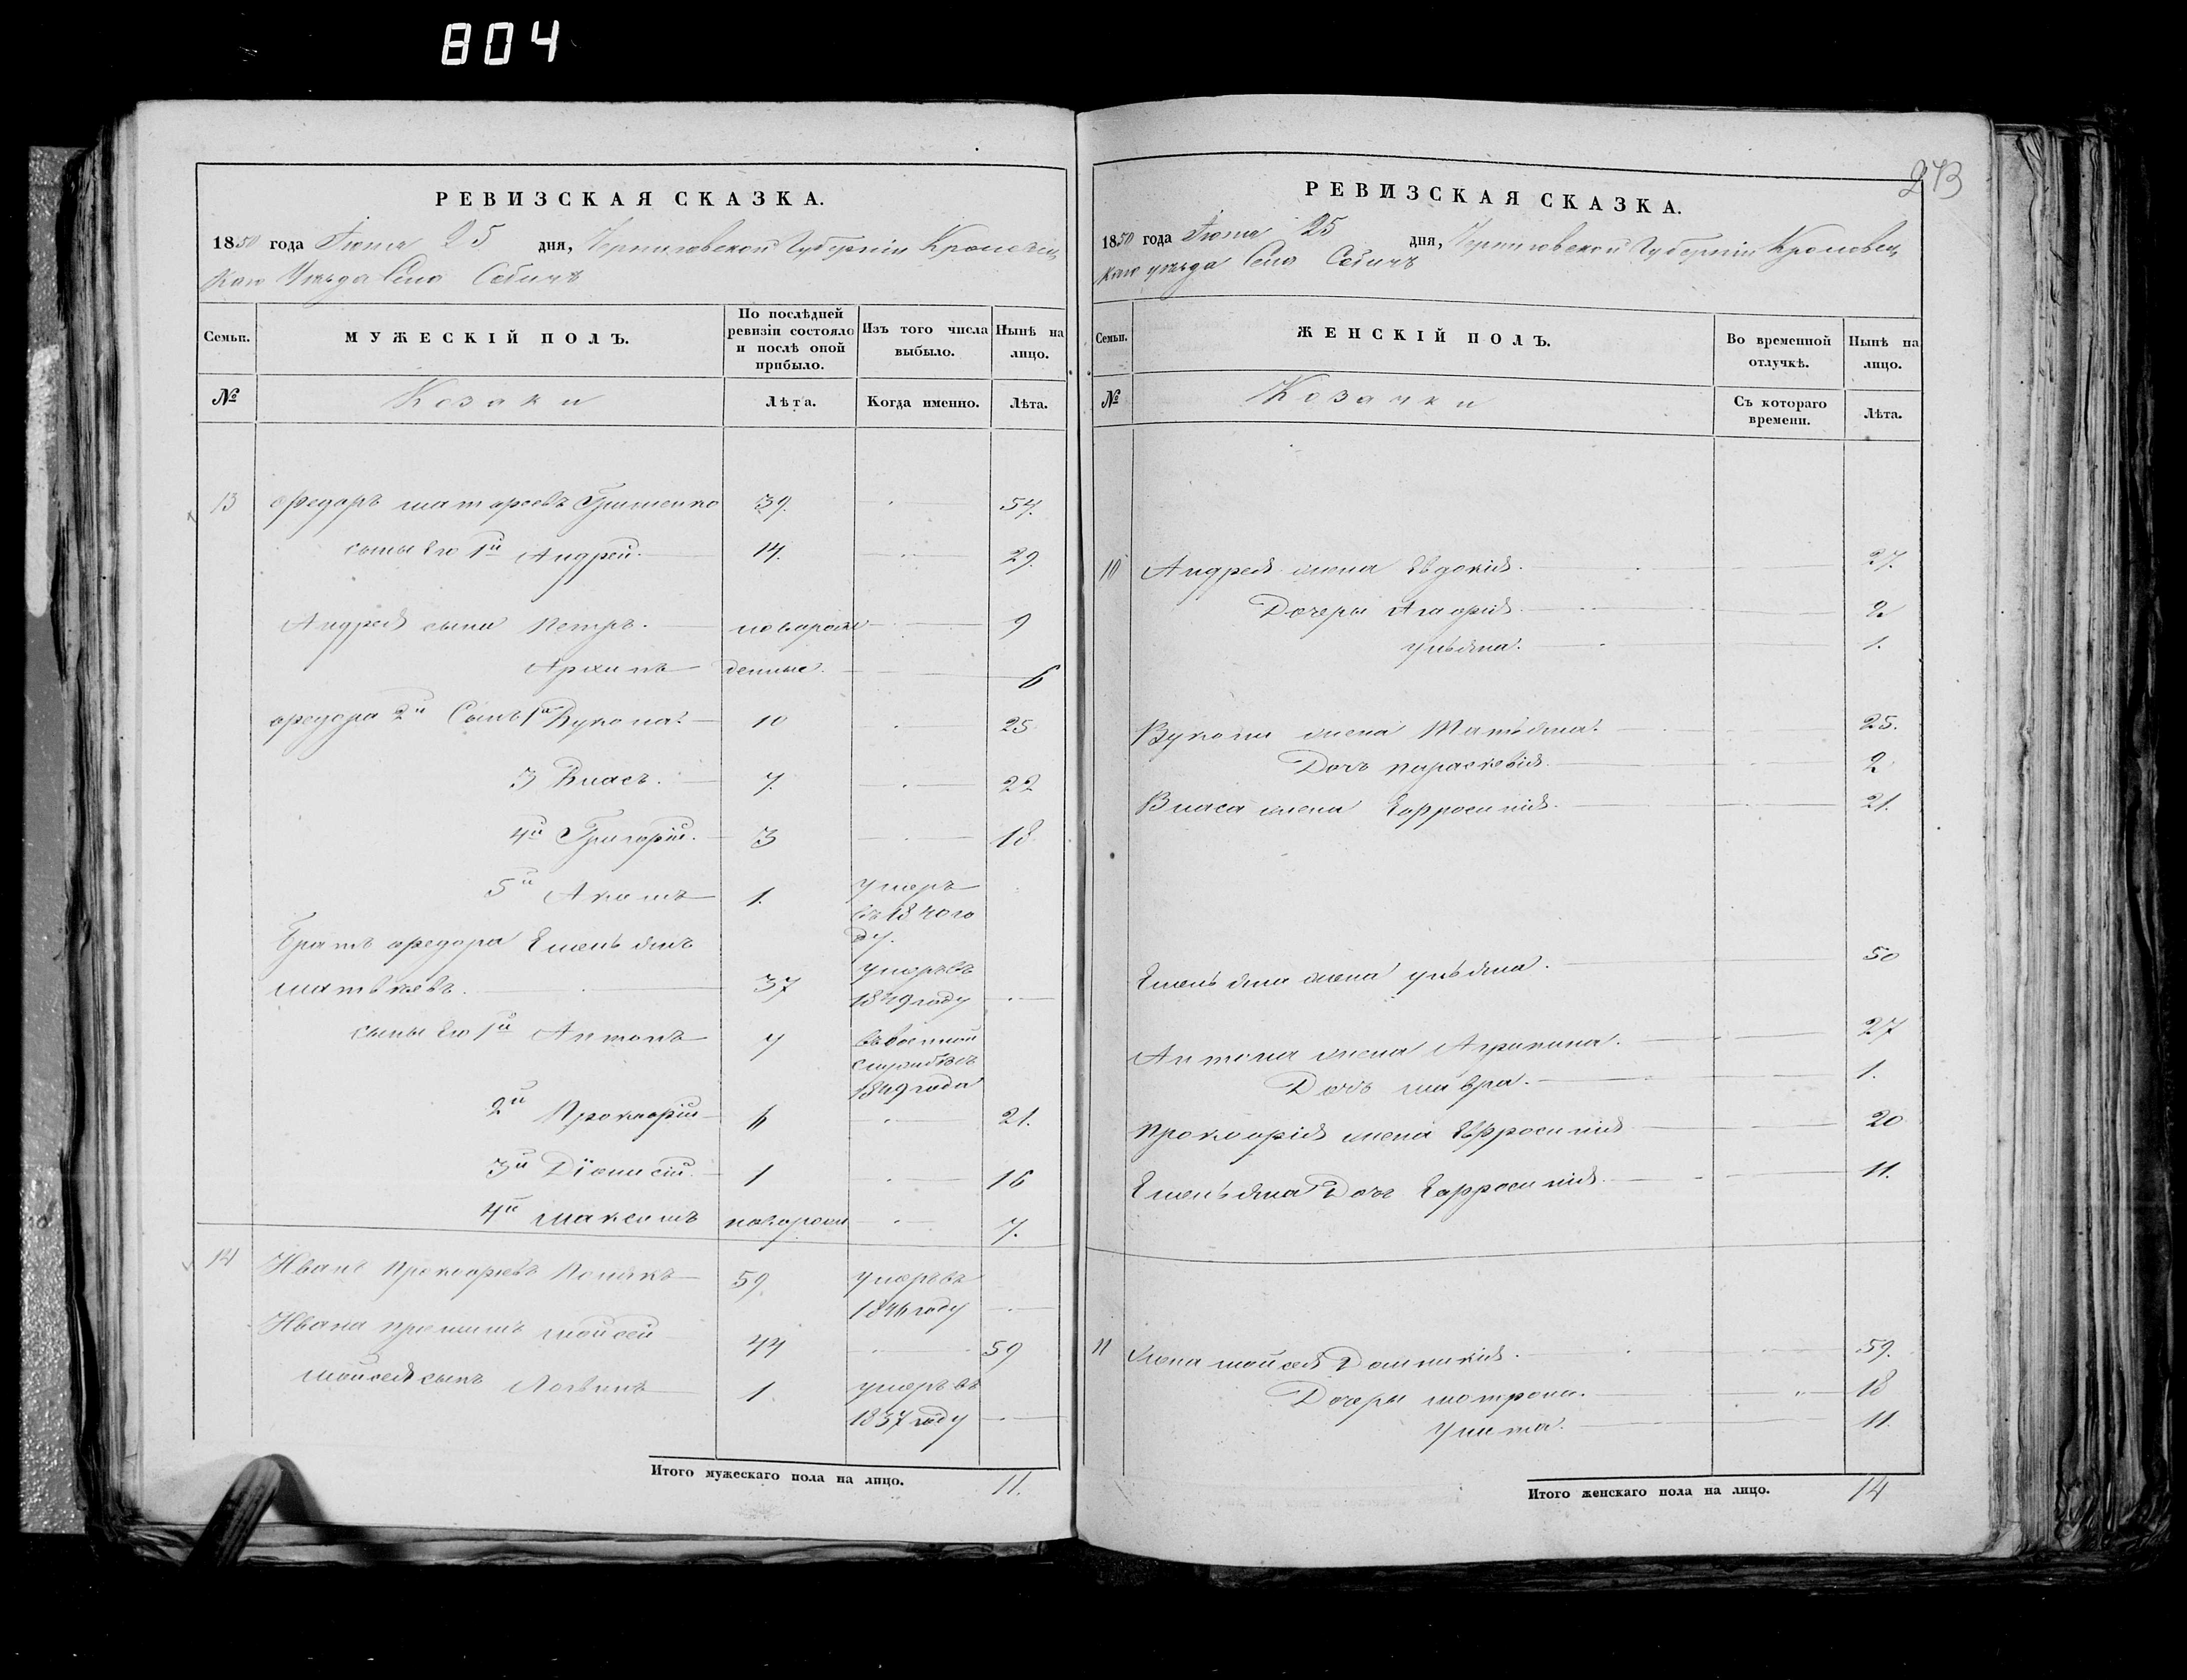 804
РЕВИЗСКАЯ СКАЗКА.
1850 года Іюля 25 дня, Черниговской Губерніи Кролевец
каго Уѣзда Село Собичъ
Семьи.
МУЖЕСКІЙ ПОЛЪ.
По послѣдней ревизіи состояло и послѣ оной прибыло.
Изъ того числа выбыло.
Нынѣ на лицо.
№
Козаки
Лѣта.
Когда именно.
Лѣта.
13 Федоръ Матфеевъ Гришенко 39. 54.
сыны его 1й Андрей. 14. 29.
Андрея сыны Петръ. новорож 9
Архипъ денные. 6
Федора 2й Сынъ Вукола. 10 25
3 Власъ. 7. 22
4й Григорій. 3 18
5й Акимъ 1. умеръ
въ 1840 го
ду.
Братъ Федора Емельянъ
Матвѣевъ. 37 умеръ въ
1849 году
сыны его 1й Антонъ 7 въ военной
службѣ съ
1849 года
2й Прокофій 6 21.
3й Діонисій. 1 16
4й Максимъ новорож 7.
14 Иванъ Прокофьевъ 59. умеръ въ
1846 году
Ивана Моисей 44 59
Моисея сынъ Логвинъ 1. умеръ въ
1837 году
Итого мужескаго пола на лицо. 11.
273
РЕВИЗСКАЯ СКАЗКА.
1850 года Іюля 25 дня, Черниговской Губерніи Кролевец
каго уѣзда Село Собичъ
Семьи.
ЖЕНСКІЙ ПОЛЪ.
Во временной отлучкѣ.
Нынѣ на лицо.
№
Козачки
Съ котораго времени.
Лѣта.
10 Андрея жена Евдокія. 27.
Дочеры Агафія 2
Ульяна. 1.
Вукола жена Татьяна. 25.
Дочь Параскевія. 2
Власа жена Ефросинія. 21.
Емельяна жена Ульяна. 50
Антона жена Агрипина. 27
Дочь Мавра. 1.
Прокофія жена Евфросинія 20
Емельяна Дочь Ефросинія. 11.
11 Жена Моисея Домникія. 59.
Дочеры Мотрона. 18
Улита. 11.
Итого женскаго пола на лицо. 14